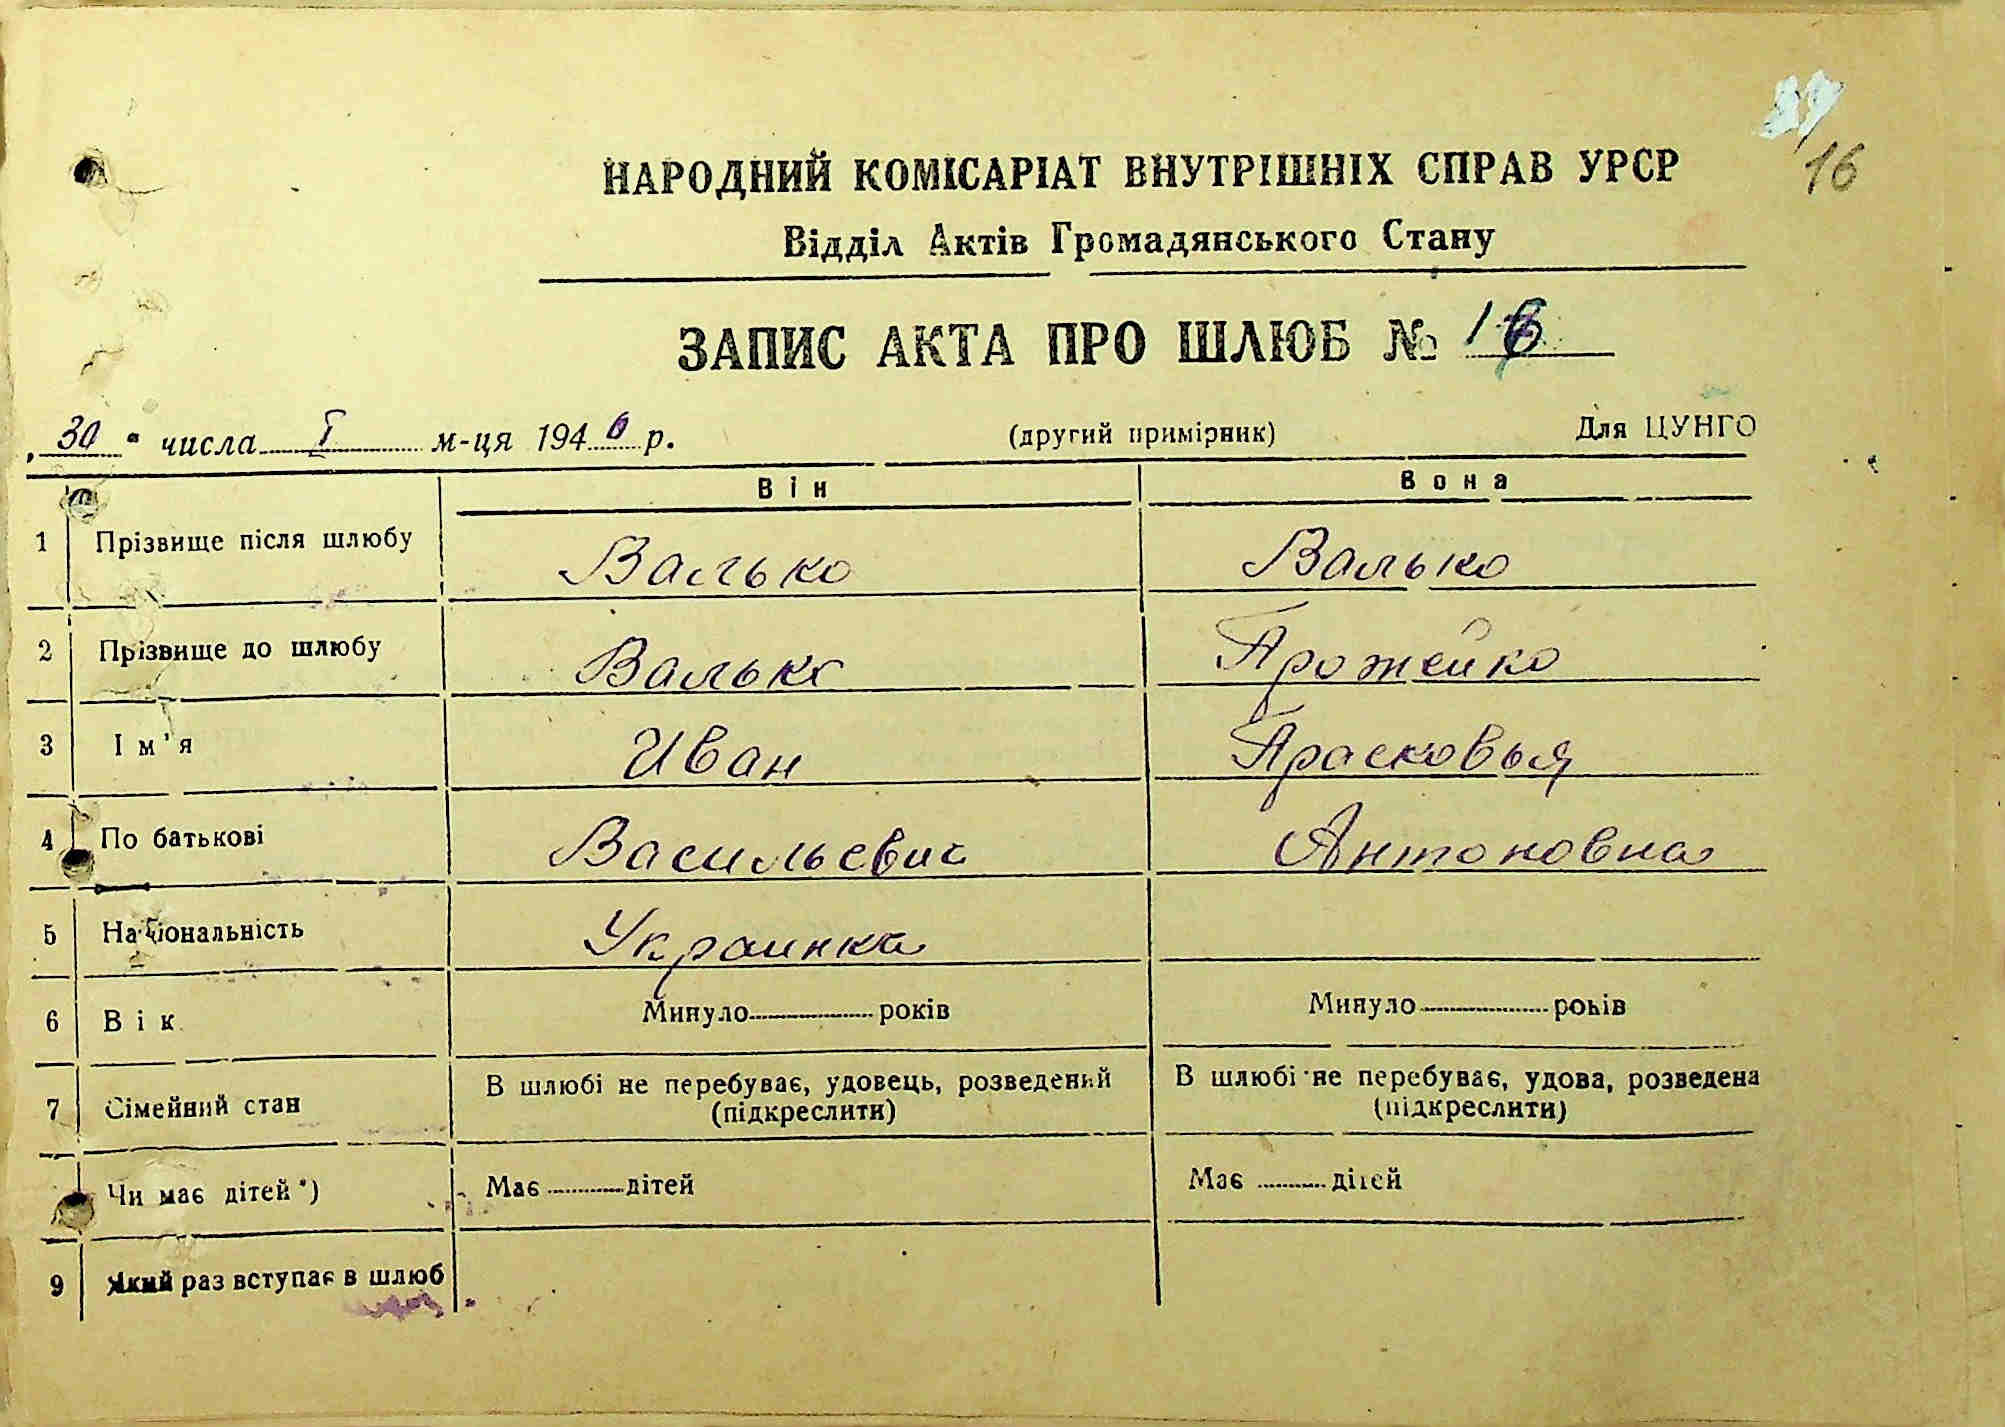 16
НАРОДНИЙ КОМІСАРІАТ ВНУТРІШНІХ СПРАВ УРСР
Відділ Актів Громадянського Стану
ЗАПИС АКТА ПРО ШЛЮБ № 16
„30 " числа I м-ця 1946 р. (другий примірник) Для ЦУНГО
Він Вона
1 Прізвище після шлюбу Валько Валько
2 Прізвище до шлюбу Валько Прожейко
3 Ім'я Иван Прасковья
4 По батькові Васильевич Антоновна
5 Національність Украинка
6 Вік Минуло років Минуло років
7 Сімейний стан В шлюбі не перебуває, удовець, розведений (підкреслити) В шлюбі не перебуває, удова, розведена (підкреслити)
Чи має дітей*) Має дітей Має дітей
9 Який раз вступає в шлюб